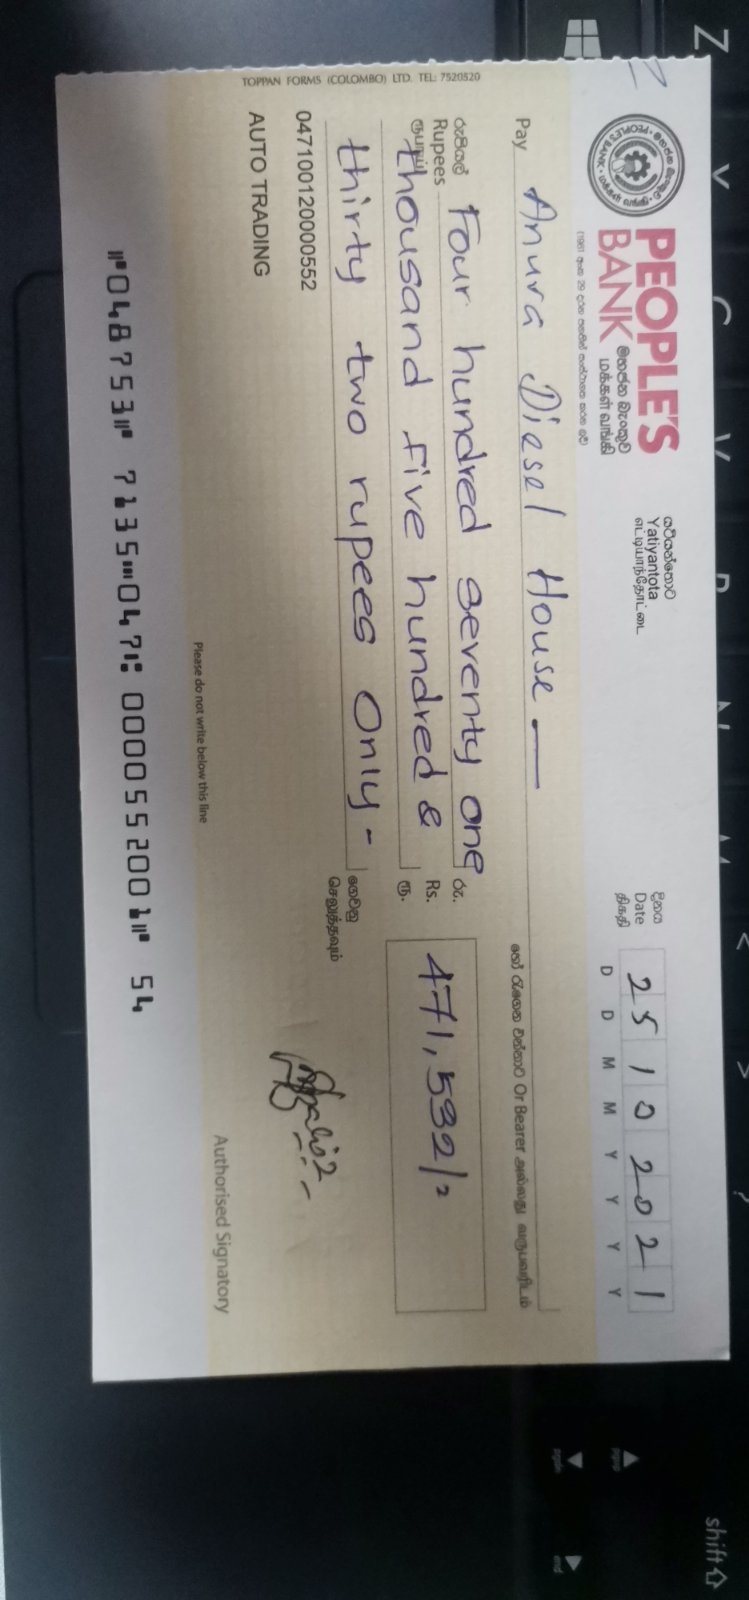 PEOPLE'S
BANK
මහජන බැංකුව
மக்கள் வங்கி
(1961 අංක 29 දරන පනතින් සංස්ථාගත කරන ලදි)
යටියන්තොට
Yatiyantota
எட்டியாந்தோட்டை
දිනය
Date
திகதி
2 5 1 0 2 0 2 1
D D M M Y Y Y Y
Pay Anura Diesel House —
හෝ රැගෙන එන්නාට Or Bearer அல்லது வருபவரிடம்
රුපියල්
Rupees
ரூபாய்
Four hundred seventy one
thousand five hundred &
thirty two rupees Only -
රු.
Rs.
ரூ.
471,532/=
ගෙවනු
செலுத்தவும்
047100120000552
AUTO TRADING
Authorised Signatory
Please do not write below this line
⑈048753⑈ 7135⑉047⑆ 0000552001⑈ 54
TOPPAN FORMS (COLOMBO) LTD. TEL: 7520520
Z
V
C
V
B
N
M
<
>
shift
pgup
pgdn
end